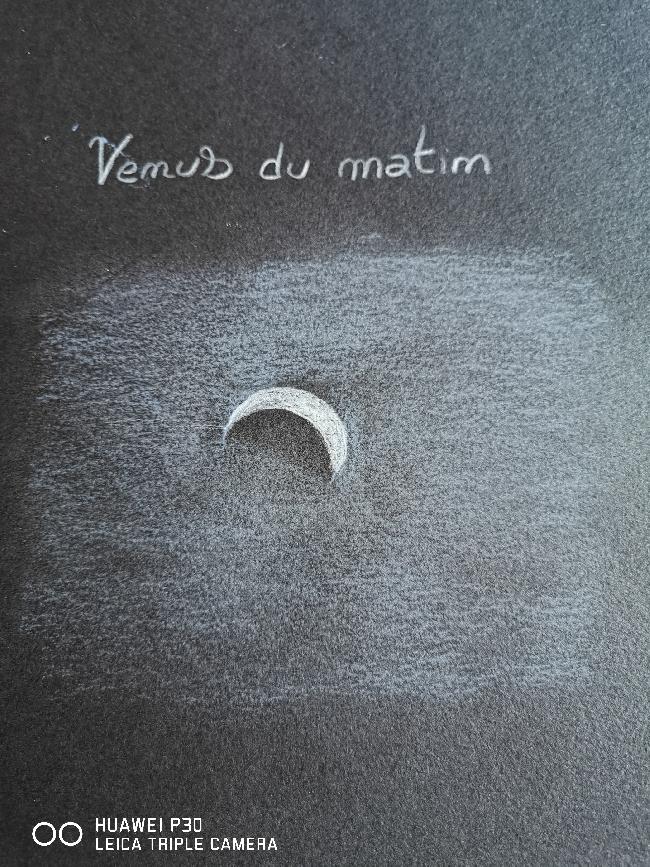 Venus du matin
HUAWEI P30
LEICA TRIPLE CAMERA